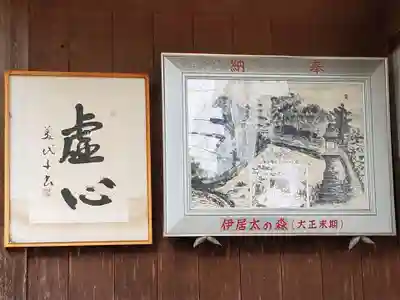 虚心
納 奉
伊居太の森(大正末期)